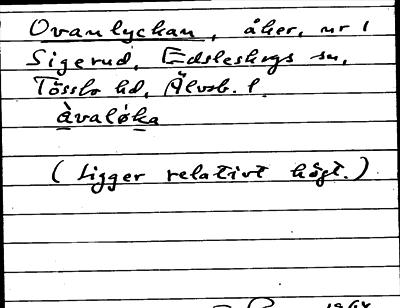 Ovanlyckan, åker, nr 1
Sigerud, Edsleskogs sn,
Tössbo hd, Älvsb. l.
àvaløka
(Ligger relativt högt.)